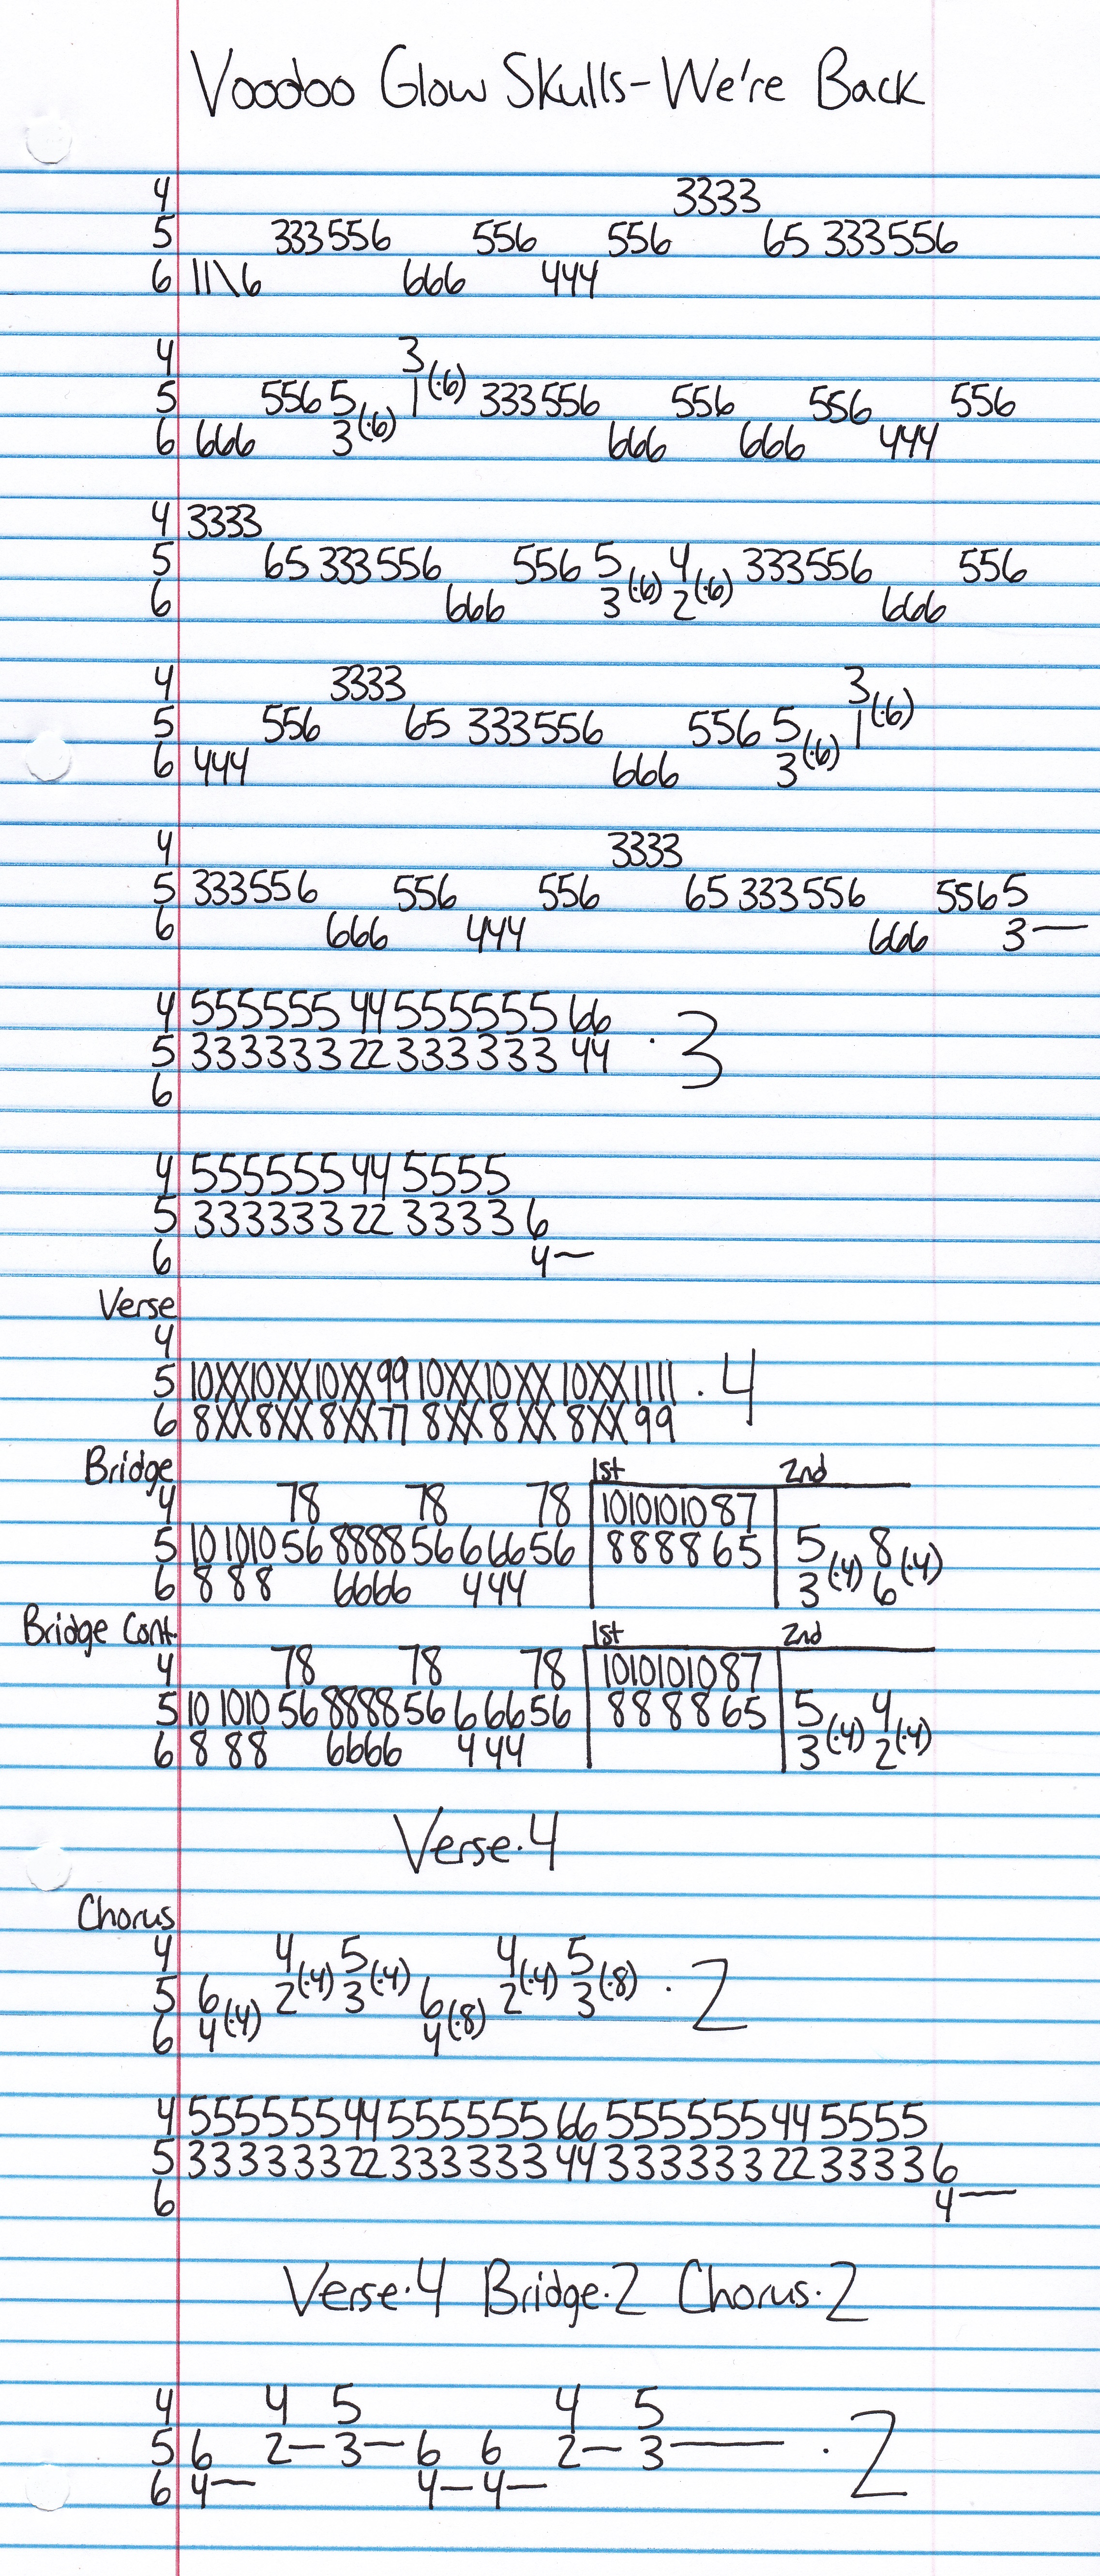 Voodoo Glow Skulls-We're Back
4 3333
5 333556 556 556 65 333556
6 11\6 666 444
4 3
5 556 5 1(·6) 333556 556 556 556
6 666 3(·6) 666 666 444
4 3333
5 65 333556 556 5 4 333556 556
6 666 3(·6) 2(·6) 666
4 3333 3
5 556 65 333556 556 5 1(·6)
6 444 666 3(·6)
4 3333
5 333556 556 556 65 333556 5565
6 666 444 666 3—
4 555555 44 555555 66 · 3
5 333333 22 333333 44
6
4 555555 44 5555
5 333333 22 3333 6
6 4—
Verse
4
5 10XX10XX10XX99 10XX10XX 10XX1111 · 4
6 8XX8XX8XX77 8XX8XX 8XX99
Bridge 1st 2nd
4 78 78 78 1010101087
5 10 1010 56 8888 56 6 66 56 8888 65 5 8
6 8 88 6666 444 3(·4) 6(·4)
Bridge Cont. 1st 2nd
4 78 78 78 1010101087
5 10 1010 56 8888 56 6 66 56 8888 65 5 4
6 8 88 6666 444 3(·4) 2(·4)
Verse·4
Chorus
4 4 5 4 5
5 6 2(·4) 3(·4) 6 2(·4) 3(·8) · 2
6 4(·4) 4(·8)
4 555555 44 555555 66 555555 44 5555
5 333333 22 333333 44 333333 22 3333 6
6 4—
Verse·4 Bridge·2 Chorus·2
4 4 5 4 5
5 6 2— 3— 6 6 2— 3— · 2
6 4— 4— 4—